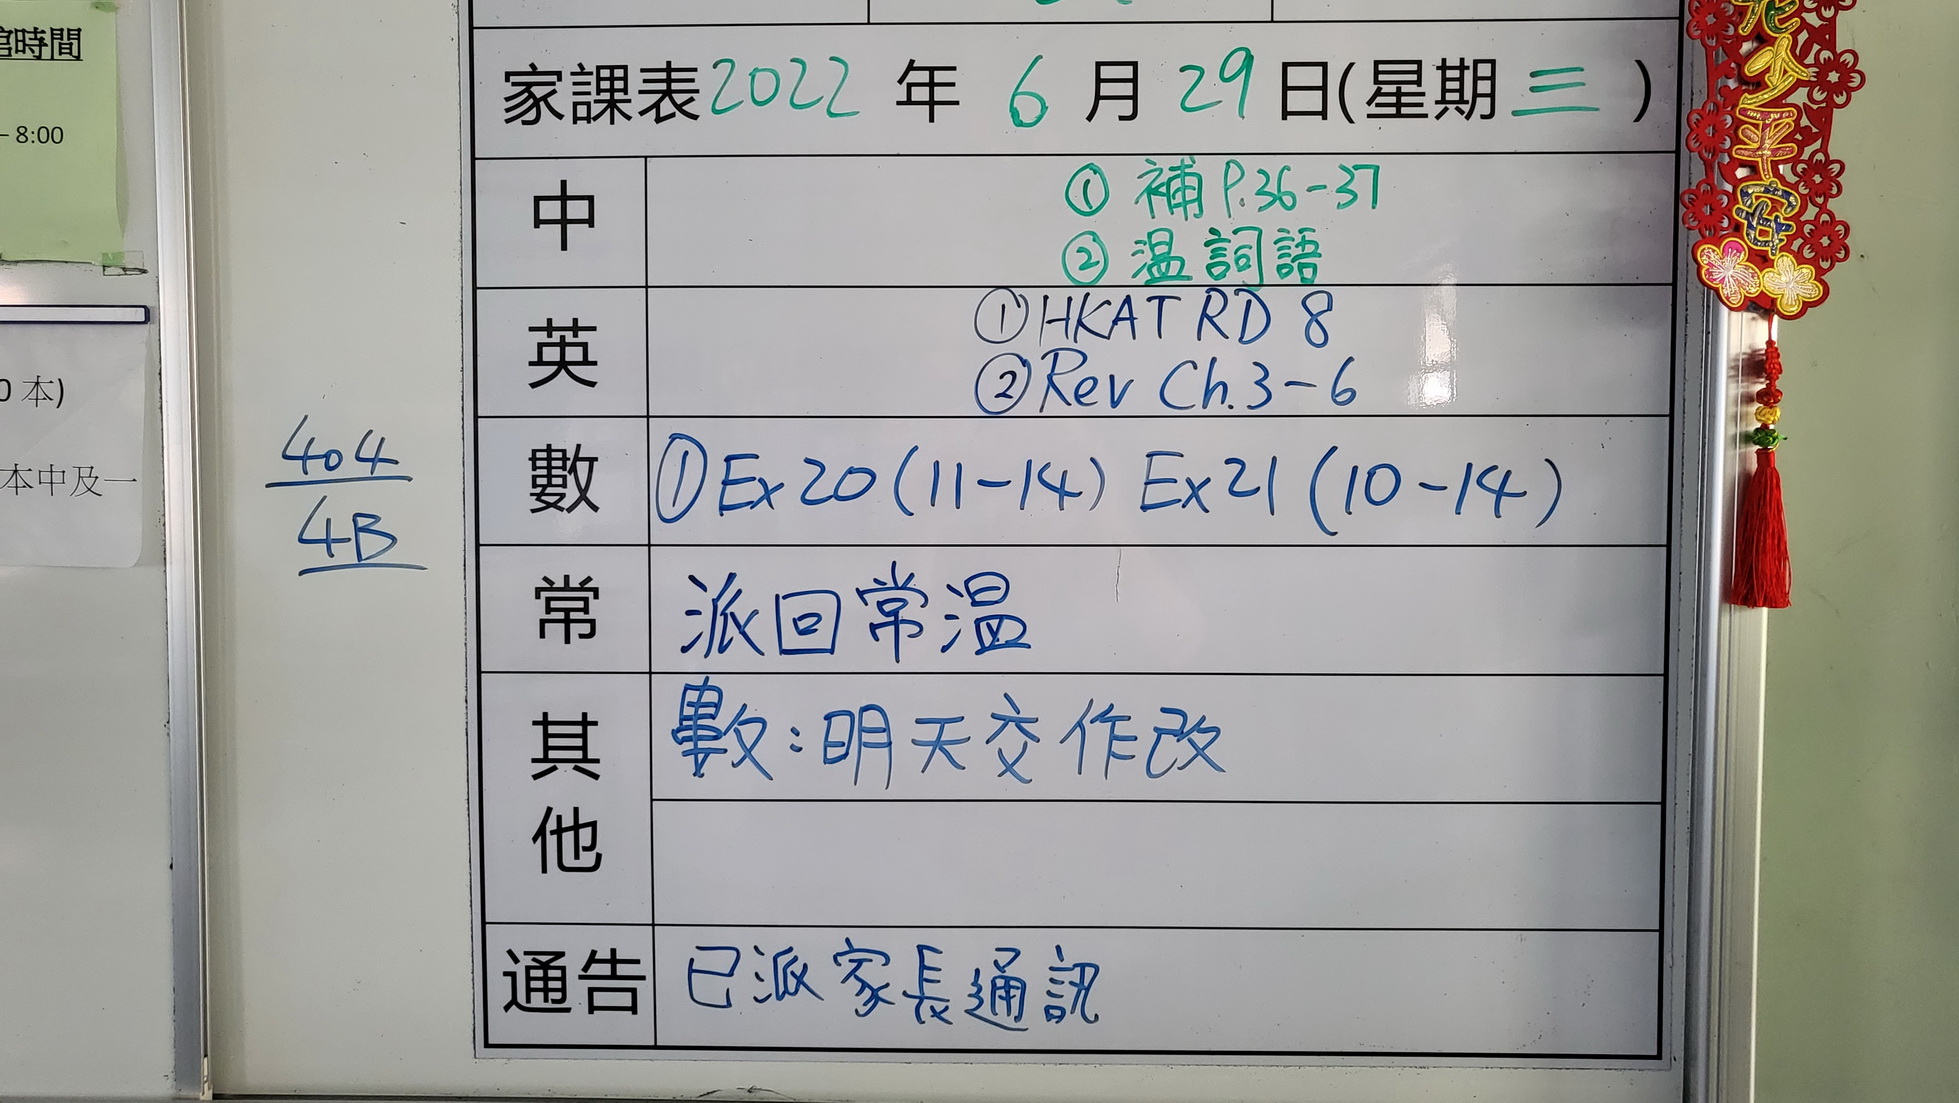 時間
- 8:00
0 本)
本中及一
404
4B
家課表2022 年 6 月 29 日(星期 三 )
中
① 補 P.36-37
② 温 詞語
英
① HKAT RD 8
② Rev Ch.3-6
數
① Ex 20 (11-14) Ex 21 (10-14)
常
派回常温
其他
數:明天交作改
通告
已派家長通訊
少平安